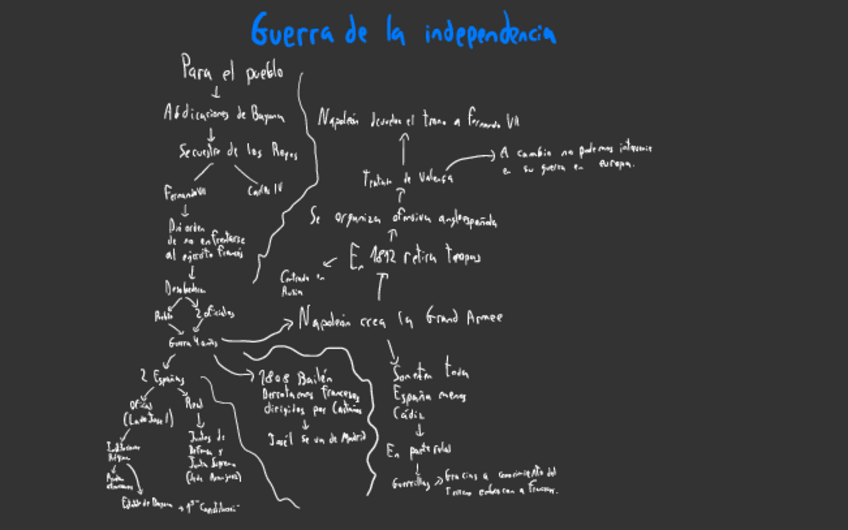 Guerra de la independencia
Para el pueblo
Abdicaciones de Bayona
Secuestro de los Reyes
Fernando VII
Carlos IV
Dio orden
de no enfrentarse
al ejercito francés
Desobedecen
Pueblo
2 oficiales
Guerra 4 años
2 Españas
Oficial
(La de Jose I)
Real
Juntas de
Defensa y
Junta Suprema
(Sede Aranjuez)
Estatuto de Bayona → 1ª Constitución
1808 Bailén
Derrotamos franceses
dirigidos por Castaños
José I se va de Madrid
Napoleón crea la Grand Armee
Someten toda
España menos
Cádiz
En parte
Guerrillas → Gracias a conocimiento del
terreno
En 1812 retira tropas
Centrado en
Rusia
Se organiza ofensiva angloespañola
Tratado de Valença
A cambio no podemos intervenir
en su guerra en europa.
Napoleón el trono a Fernando VII